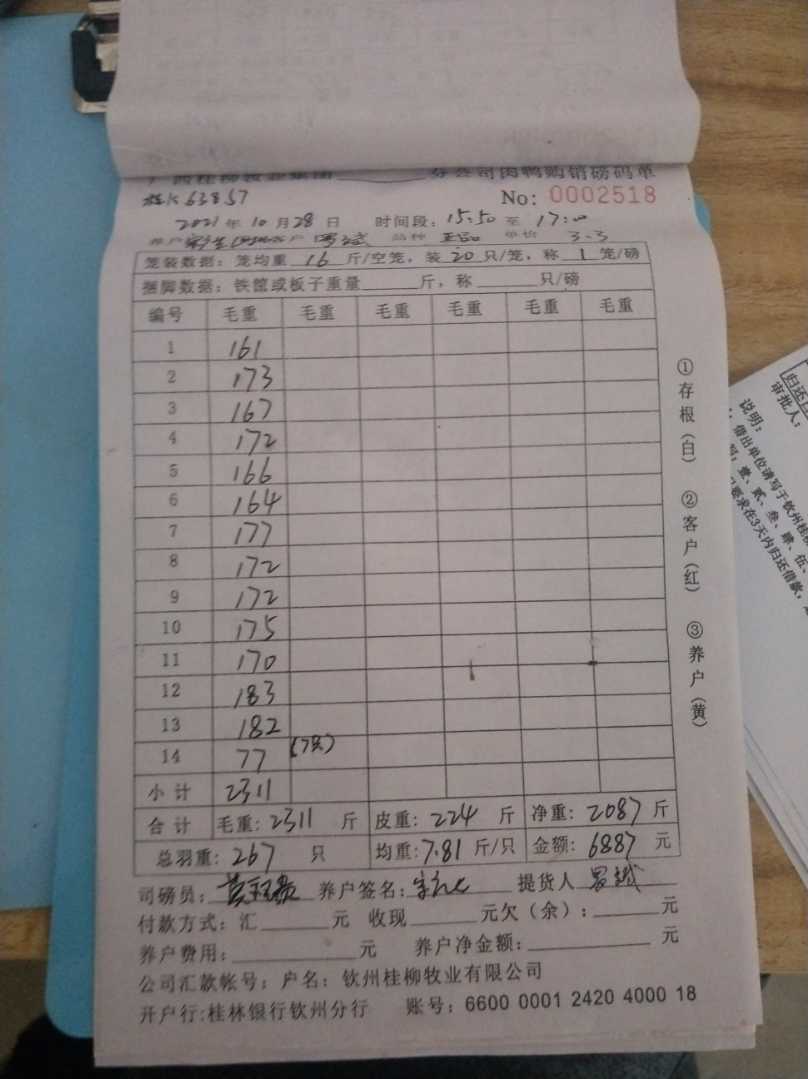 广西桂柳牧业集团 分公司肉鸭购销磅码单
63857 No: 0002518
2021 年 10 月 28 日 时间段: 15:50 至 17:00
养户 客户 品种 正品 单价 3.3
笼装数据: 笼均重 16 斤/空笼, 装 20 只/笼, 称 1 笼/磅
捆脚数据: 铁筐或板子重量 斤, 称 只/磅
编号 毛重 毛重 毛重 毛重 毛重 毛重
1 161
2 173
3 167
4 172
5 166
6 164
7 177
8 172
9 172
10 175
11 170
12 183
13 182
14 77 (7只)
小计 2311
合计 毛重: 2311 斤 皮重: 224 斤 净重: 2087 斤
总羽重: 267 只 均重: 7.81 斤/只 金额: 6887 元
司磅员: 养户签名: 提货人
付款方式: 汇 元 收现 元欠(余): 元
养户费用: 元 养户净金额: 元
公司汇款帐号: 户名: 钦州桂柳牧业有限公司
开户行:桂林银行钦州分行 账号: 6600 0001 2420 4000 18
①存根(白) ②客户(红) ③养户(黄)
审批人:
说明: